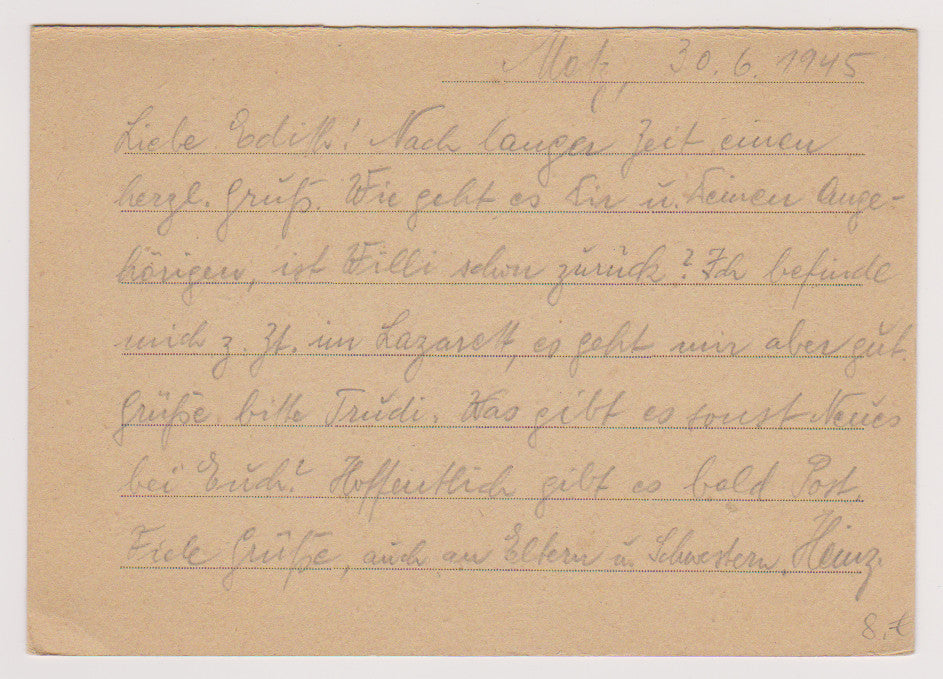 30. 6. 1945
Liebe Edith! Nach langer Zeit einen
herzl. Gruß. Wie geht es Dir u. Deinen Ange-
hörigen, ist Willi schon zurück? Ich befinde
mich z. Zt. im Lazarett, es geht mir aber gut.
Grüße bitte Trudi. Was gibt es sonst Neues
bei Euch? Hoffentlich gibt es bald Post.
Viele Grüße, auch an Eltern u. Schwestern, Heinz.
8.-